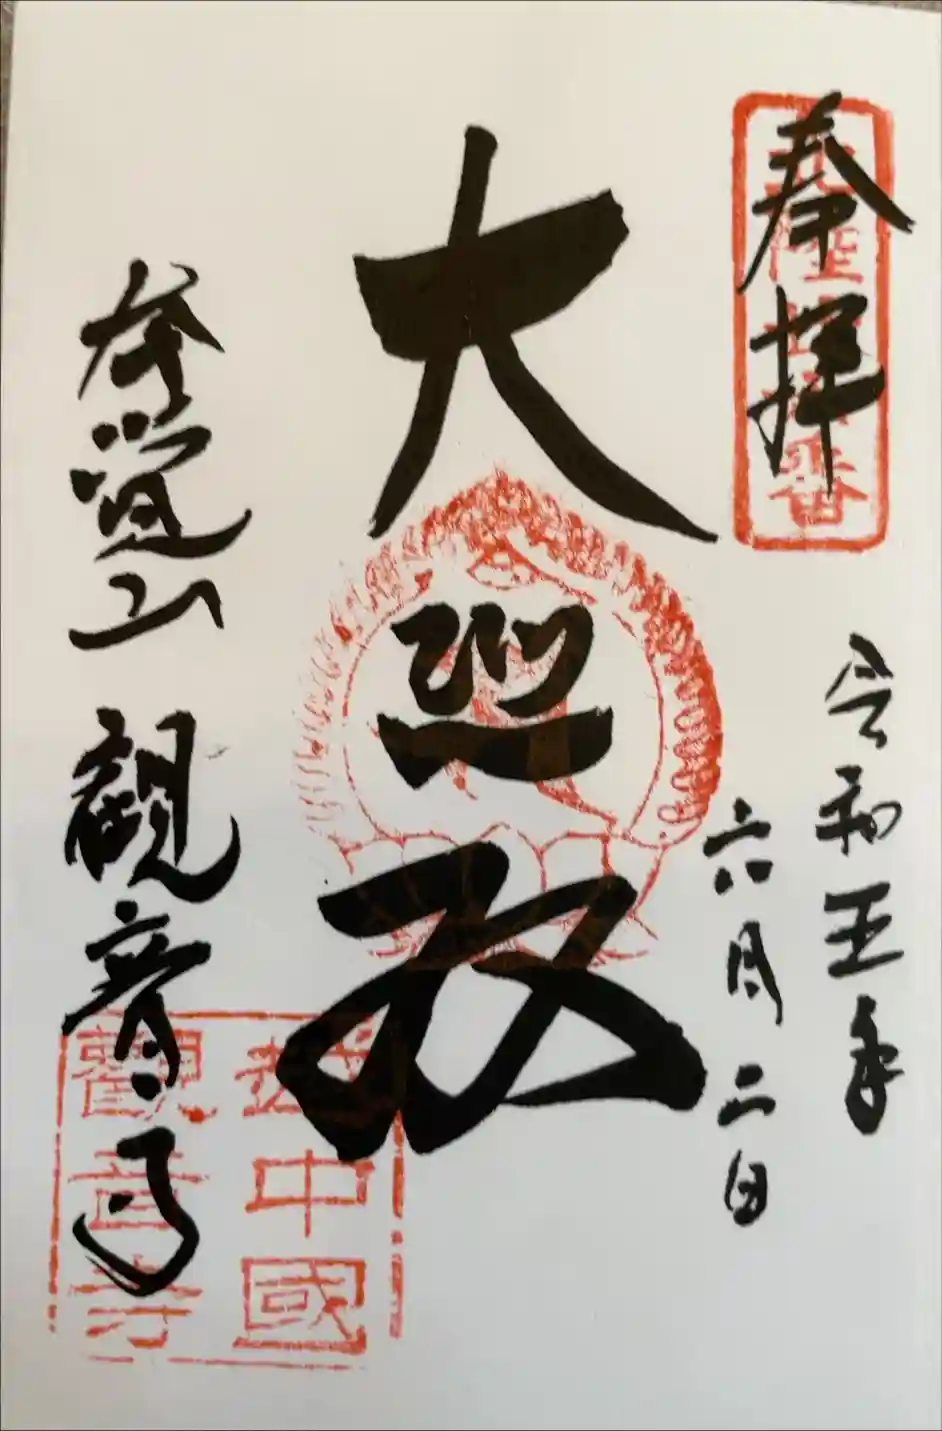 奉拝
令和五年
六月二日
大悲殿
本覚山 観音寺
越中國
觀音寺